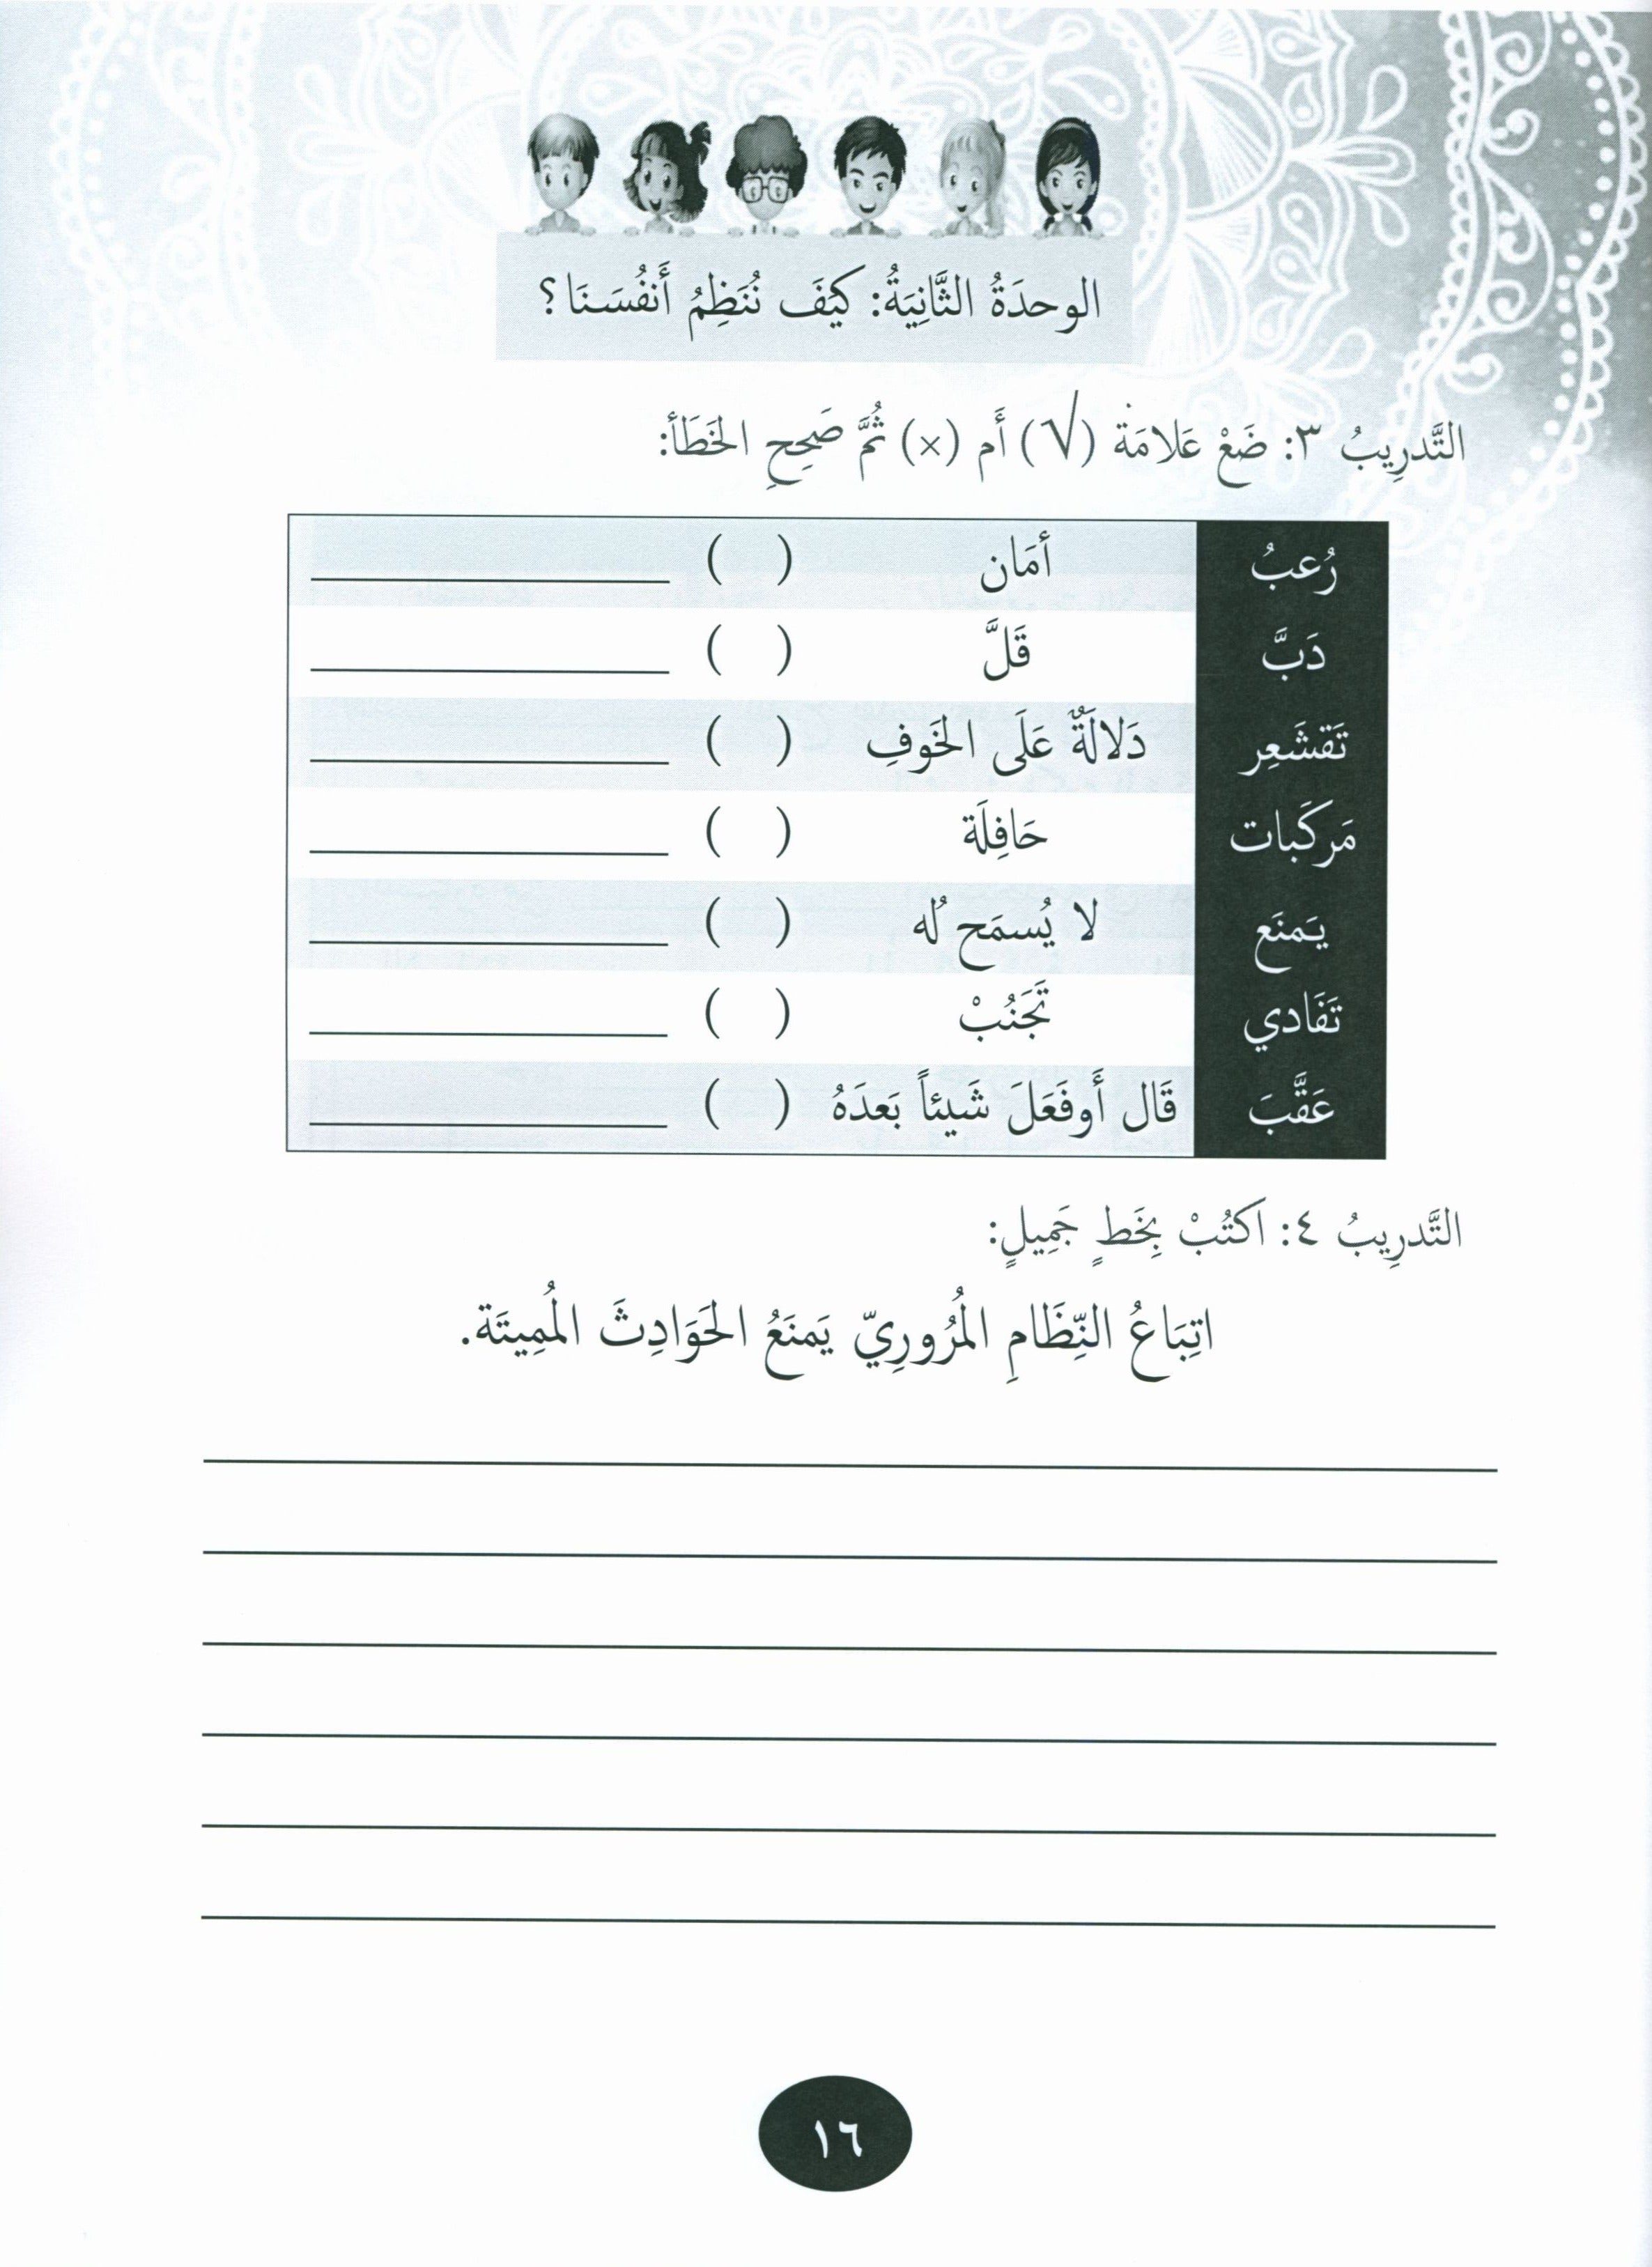 الوحدَةُ الثَّانِيَةُ: كَيْفَ نُنَظِمُ أَنفُسَنَا؟
التَّدرِيبُ ٣: ضَعْ عَلامَة (√) أَم (×) ثُمَّ صَحِحِ الخَطَأ:
رُعبُ أمَان ( ) ____________
دَبَّ قَلَّ ( ) ____________
تَقشَعِر دَلالَةٌ عَلَى الخَوفِ ( ) ____________
مَركَبات حَافِلَة ( ) ____________
يَمنَع لا يُسمَح لُه ( ) ____________
تَفَادي تَجَنُبْ ( ) ____________
عَقَّبَ قَال أَوفَعَلَ شَيئاً بَعدَهُ ( ) ____________
التَّدرِيبُ ٤: اكتُبْ بِخَطٍ جَمِيلٍ:
اتِبَاعُ النِّظَامِ المُرُورِيّ يَمنَعُ الحَوَادِثَ المُمِيتَة.
١٦